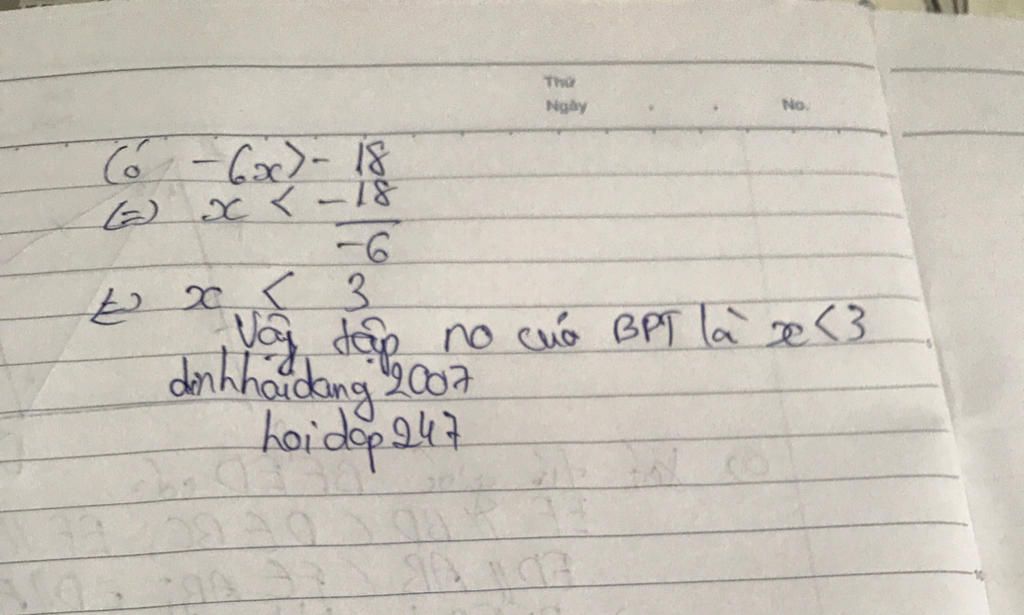 Thứ
Ngày . . No.
Có -6x > -18
(=) x < -18
-6
(=) x < 3
Vậy tập no của BPT là x < 3
dinhhaidang2007
hoidap247